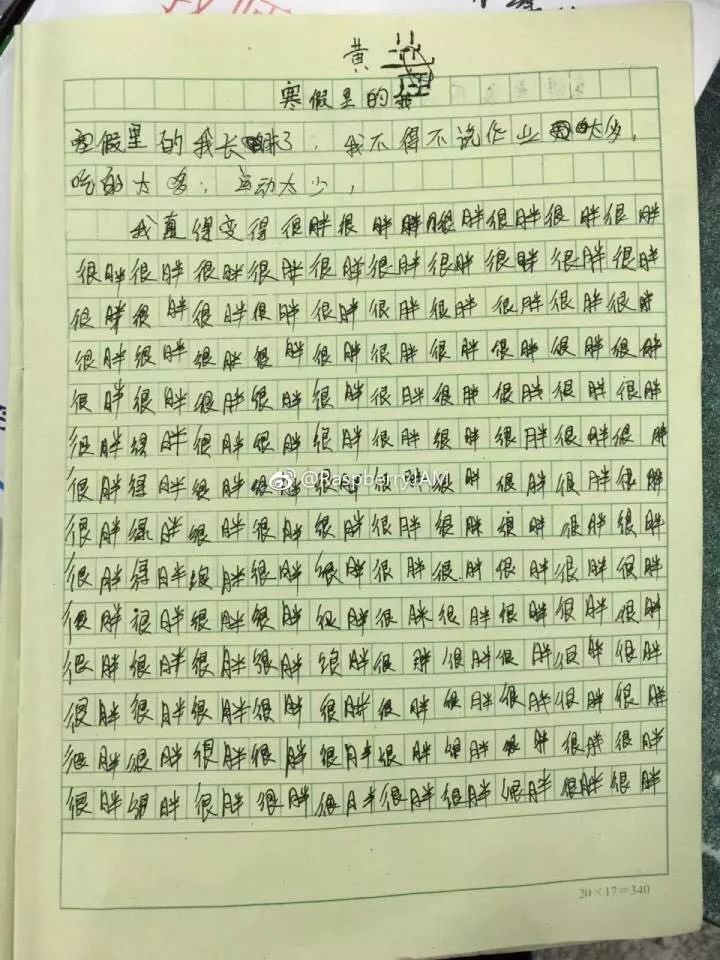 黄
寒假里的我
寒假里的我长胖了,我不得不说作业太多,
吃的太多,运动太少,
我真得变得很胖很胖胖很胖很胖很胖很胖
很胖很胖很胖很胖很胖很胖很胖很胖很胖很胖
很胖很胖很胖很胖很胖很胖很胖很胖很胖很胖
很胖很胖很胖很胖很胖很胖很胖很胖很胖很胖
很胖很胖很胖很胖很胖很胖很胖很胖很胖很胖
很胖很胖很胖很胖很胖很胖很胖很胖很胖很胖
很胖很胖很胖很胖很胖很胖很胖很胖很胖很胖
很胖很胖很胖很胖很胖很胖很胖很胖很胖很胖
很胖很胖很胖很胖很胖很胖很胖很胖很胖很胖
很胖很胖很胖很胖很胖很胖很胖很胖很胖很胖
很胖很胖很胖很胖很胖很胖很胖很胖很胖很胖
很胖很胖很胖很胖很胖很胖很胖很胖很胖很胖
很胖很胖很胖很胖很胖很胖很胖很胖很胖很胖
很胖很胖很胖很胖很胖很胖很胖很胖很胖很胖
@RaspberryJAM
20×17=340